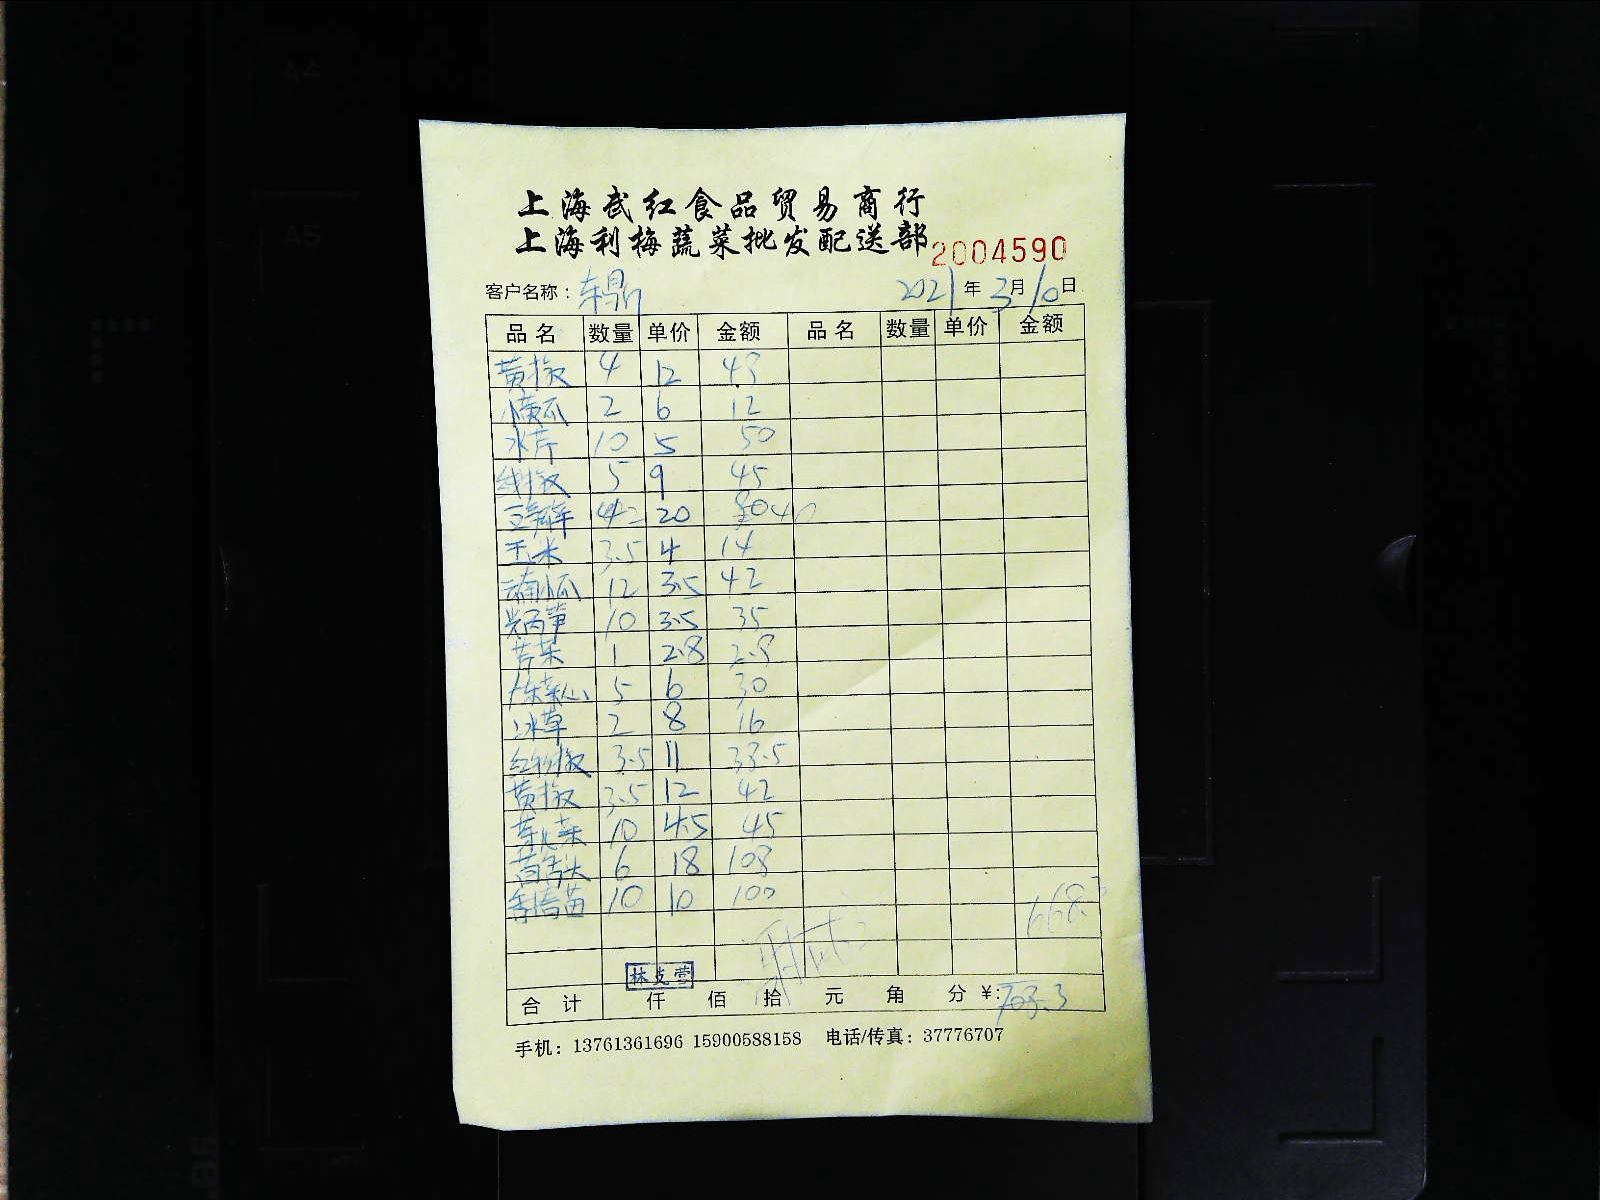 上海武红食品贸易商行
上海利梅蔬菜批发配送部 2004590
客户名称：东鼎 2021年3月10日
品名 数量 单价 金额 品名 数量 单价 金额
黄椒 4 12 48
小黄瓜 2 6 12
水芹 10 5 50
线椒 5 9 45
豆苗 4 2 20 80 40
玉米 3.5 4 14
南瓜 12 3.5 42
莴笋 10 3.5 35
芹菜 1 2.8 2.8
菜心 5 6 30
冰草 2 8 16
红椒 3.5 11 38.5
黄椒 3.5 12 42
菜 10 4.5 45
头 6 18 108
苗 10 10 100
668.3
林支营
合计 仟 佰 拾 元 角 分 ¥: 708.3
手机：13761361696 15900588158 电话/传真：37776707